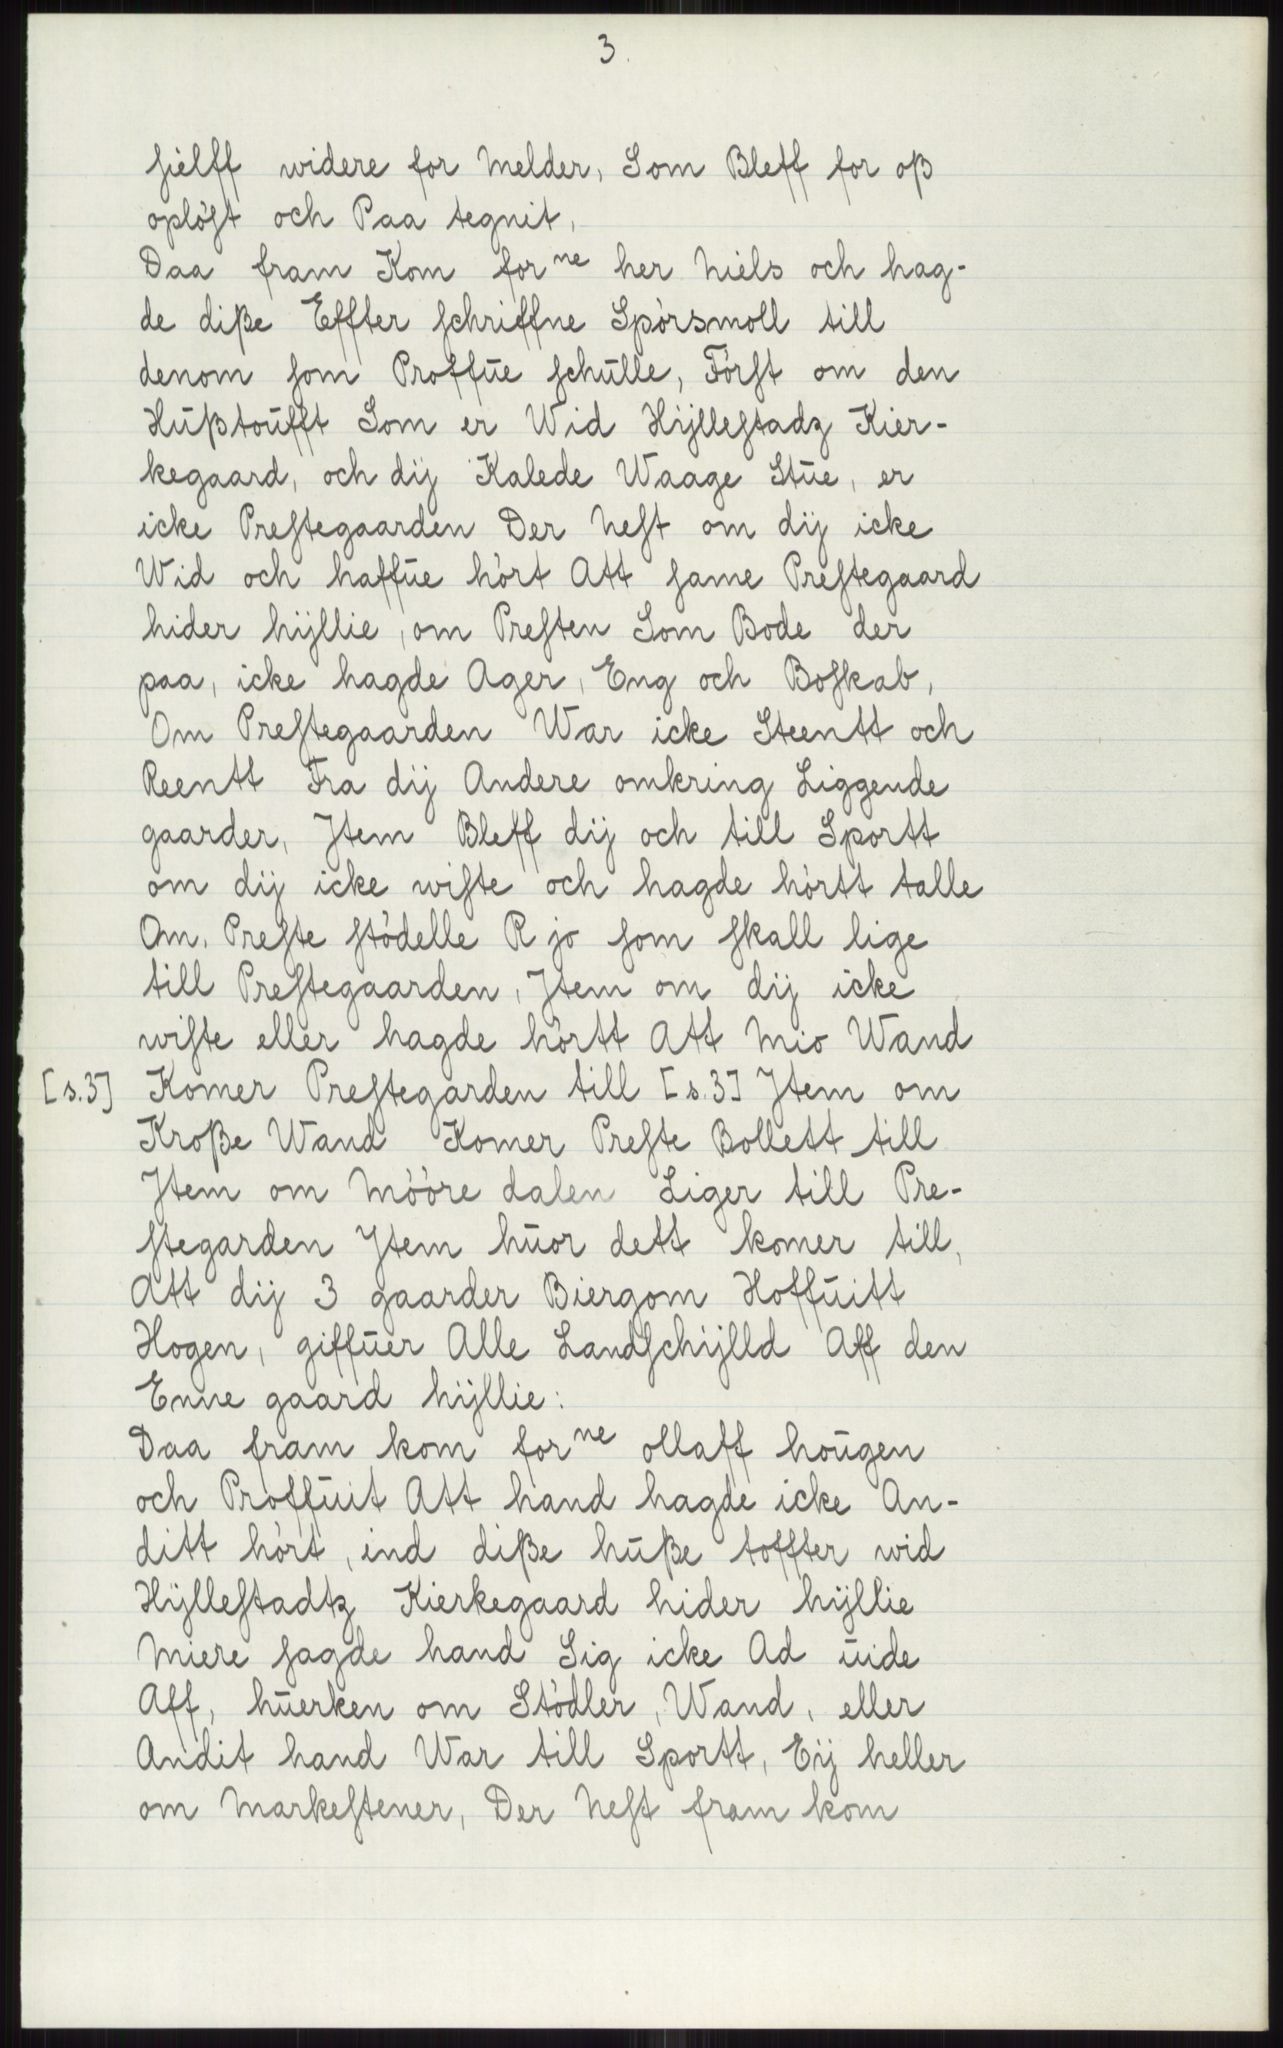 3.
sielff widere for melder, Som Bleff for oß
oplößt och Paa tegnit,
Daa fram Kom for ne her Niels och hag-
de diße Effter schriffne Spòrsmoll till
denom som Proffūe schūlle, Fòrst om den
Hūßtoūfft Som er Wid Hÿllestadz Kier-
kegaard, och dij Kalede Waage Stūe, er
icke Prestegaarden Der Nest om dij icke
Wid och haffūe hòrt Att same Prestegaard
hider hÿllie, om Presten Som Bode der
paa, icke hagde Ager, Eng och Boskab,
Om Prestegaarden War icke Steentt och
Reentt Fra dij Andere omkring Liggende
gaarder, Jtem Bleff dij och till Sportt
om dij icke wiste och hagde hòrtt talle
Om, Preste stòdelle R jo som skall lige
till Prestegaarden, Jtem om dij icke
wiste eller hagde hòrtt Att Mio Wand
[s.3] Komer Prestegarden till [s.3] Jtem om
Kroße Wand Komer Preste Bollett till
Jtem om Mòòre dalen Liger till Pre-
stegarden Jtem hūor dett komer till,
Att dij 3 gaarder Biergom Hoffūitt
Hogen, giffūer Alle Landschÿlld Aff den
Enne gaard hÿllie:
Daa fram kom for ne ollaff hoūgen
och Proffūit Att hand hagde icke An-
ditt hòrt, ind diße hūße toffter wid
Hÿllestadtz Kierkegaard hider hÿllie
Miere sagde hand Sig icke Ad ūide
Aff, hūerken om Stòdler, Wand, eller
Andit hand War till Sportt, Eÿ heller
om Markestener, Der Nest fram kom